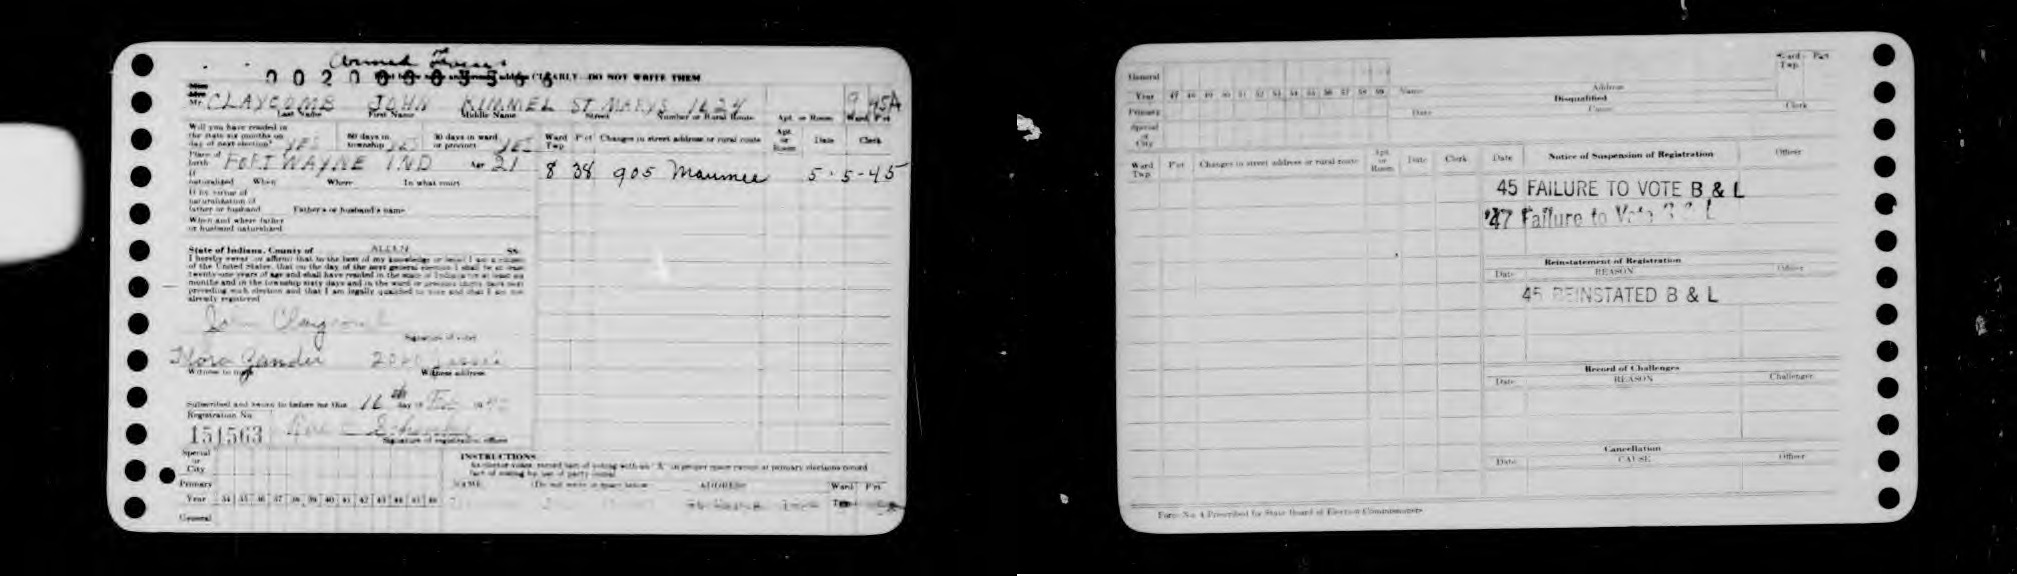 Armed Forces
CLEARLY—DO NOT WRITE THEM
Mr. CLAYCOMB JOHN KIMMEL ST MARYS 1624 9 45A
Last Name First Name Middle Name Street Number or Rural Route Apt. or Room Ward Pct
Will you have resided in
the state six months on
day of next election? YES 60 days in
township YES 30 days in ward
or precinct YES
Ward
Twp. Pct Changes in street address or rural route Apt.
or
Room Date Clerk
Place of
birth FORT WAYNE IND Age 21
8 38 905 Maumee 5-5-45
If
naturalized When Where In what court
If by virtue of
naturalization of
father or husband Father's or husband's name
When and where father
or husband naturalized
State of Indiana, County of ALLEN SS
I hereby swear or affirm that to the best of my knowledge or belief I am a citizen
of the United States, that on the day of the next general election I shall be at least
twenty-one years of age and shall have resided in the state of Indiana for at least six
months and in the township sixty days and in the ward or precinct thirty days next
preceding such election and that I am legally qualified to vote and that I am not
already registered
John Claycomb
Signature of voter
Flora Zander
Witness to mark Witness address
Subscribed and sworn to before me this 16th day of Feb
Registration No.
151563
Signature of registration officer
Special
or
City
Primary
Year 34 35 36 37 38 39 40 41 42 43 44 45 46
General
INSTRUCTIONS
NAME (Do not write in space below) ADDRESS Ward Pct
Twp
General
Year 47 48 49 50 51 52 53 54 55 56 57 58 59 Name Address
Ward Pct
Twp.
Disqualified
Primary Date Cause Clerk
Special
or
City
Ward
Twp. Pct Changes in street address or rural route Apt.
or
Room Date Clerk
Date Notice of Suspension of Registration Officer
45 FAILURE TO VOTE B & L
'47 Failure to Vote B & L
Reinstatement of Registration
Date REASON Officer
45 REINSTATED B & L
Record of Challenges
Date REASON Challenger
Cancellation
Date CAUSE Officer
Form No. 4 Prescribed by State Board of Election Commissioners